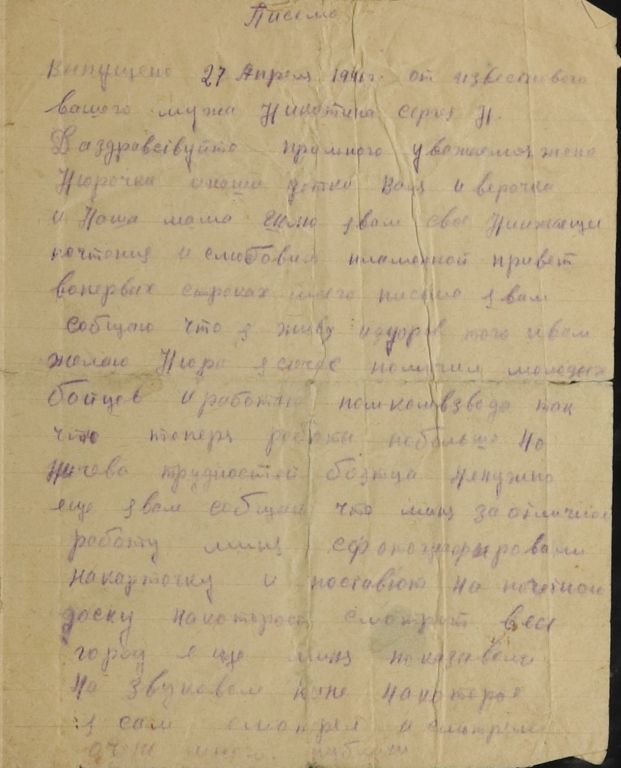 Письмо
Выпущено 27 Апреля 1941г. от известново
вашого мужа Никотина Сергея Н.
Ваздравствуйте премного уважаемоя жена
Нюрочка и наши детки Валя и верочка
и Наша мама Шлю я вам свое Ниижающи
почтения и слюбовия пламенной привет
вопервых строках моего письмо я вам
собщаю что я живу издоров того и вам
желаю Нюра я сичас получил молодых
бойцов и работаю помкомвзвода так
что теперя работы побольше Но
ничева трудностей боятца Ненужно
еще я вам собщаю что миня заотличною
работу миня сфотографировали
накарточку и поставют на почетною
доску накоторою смотрит весь
город я ще миня показавали
на звуковом кине накоторое
я сам смотрел и смотрели
очень много публики